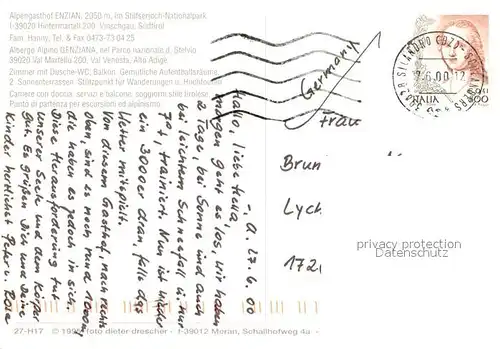 Alpengasthof ENZIAN, 2050 m, im Stilfserjoch-Nationalpark
I-39020 Hintermartell 200, Vinschgau, Südtirol
Fam. Hanny, Tel. & Fax 0473-73 04 25
Albergo Alpino GENZIANA, nel Parco nazionale d. Stelvio
39020 Val Martello 200, Val Venosta, Alto Adige
Zimmer mit Dusche-WC, Balkon. Gemütliche Aufenthaltsräume,
2 Sonnenterrassen. Stützpunkt für Wanderungen u. Hochtouren
Camere con doccia, servizi e balcone, soggiorni stile tirolese.
Punto di partenza per escursioni ed alpinismo.
-, d. 27.6.00
Hallo, liebe Hella,
morgen geht es los, wir haben
2 Tage, bei Sonne und auch
bei leichtem Schneefall in nur
70+, trainiert. Nun ist wieder
ein 3000er dran, falls das
Wetter mitspielt.
Von diesem Gasthof, nach rechts
oben, sind es noch rund 1000m,
die haben es jedoch in sich.
Diese Herausforderung tut
unserer Seele und dem Körper
gut. Es grüßen Dich und Deine
Kinder herzlichst Peter u. Rosa
Germany
Frau
Brun
Lyck
172
SILANDRO
.6.00 12
ITALIA
800
privacy protection
Datenschutz
27-H17 © foto dieter drescher - I-39012 Meran, Schallhofweg 4a